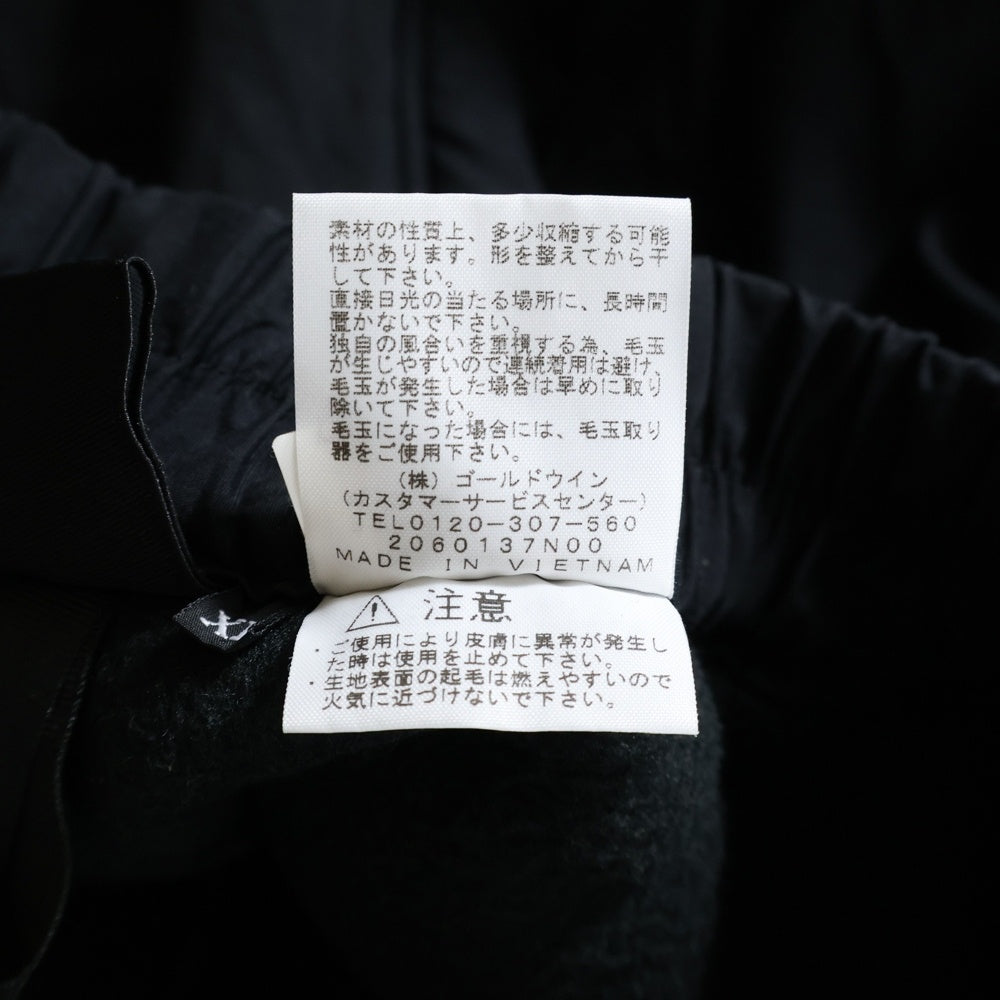 素材の性質上、多少収縮する可能
性があります。形を整えてから干
して下さい。
直接日光の当たる場所に、長時間
置かないで下さい。
独自の風合いを重視する為、毛玉
が生じやすいので連続着用は避け、
毛玉が発生した場合は早めに取り
除いて下さい。
毛玉になった場合には、毛玉取り
器をご使用下さい。
(株)ゴールドウイン
(カスタマーサービスセンター)
TEL0120-307-560
2060137N00
MADE IN VIETNAM
注意
・ご使用により皮膚に異常が発生し
た時は使用を止めて下さい。
・生地表面の起毛は燃えやすいので
火気に近づけないで下さい。